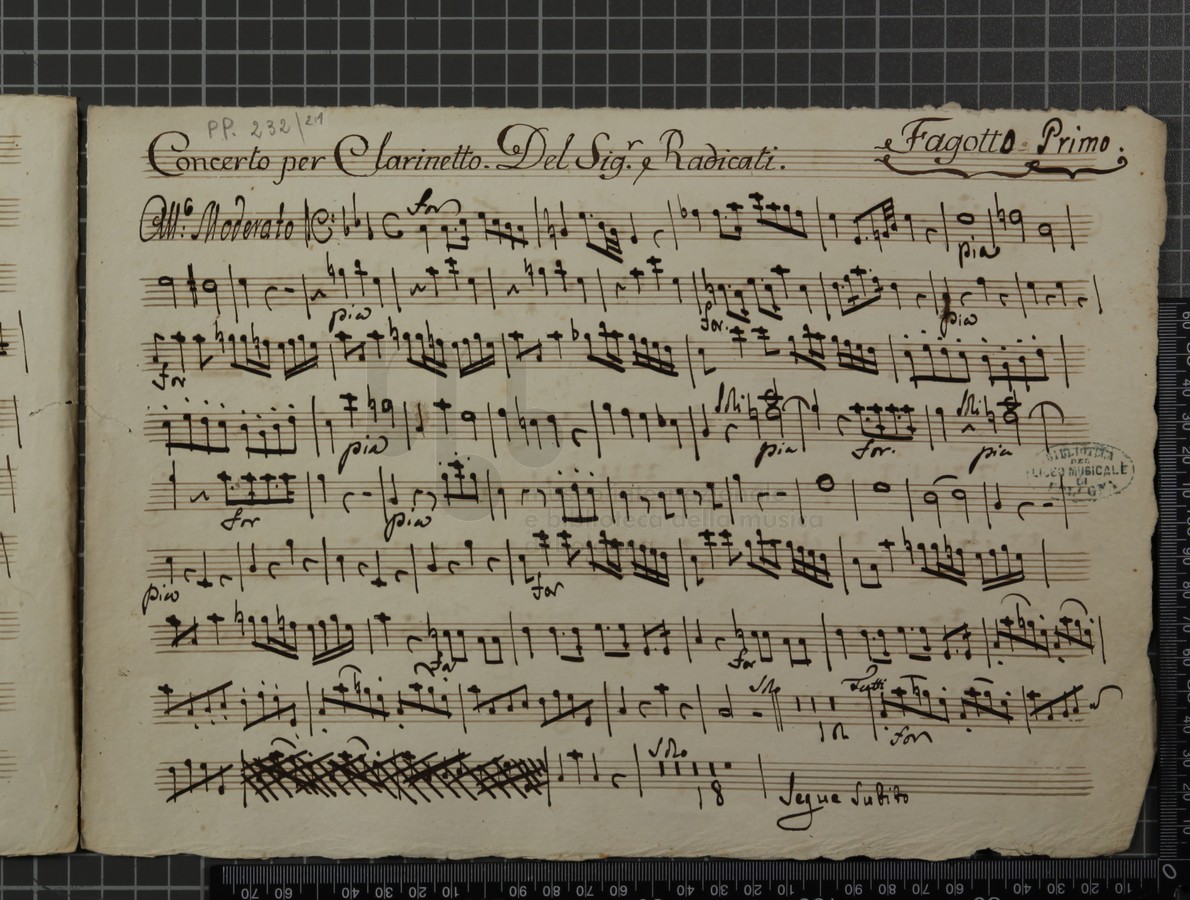 PP. 232/21
Concerto per Clarinetto. Del Sigr. Radicati.
Fagotto Primo.
All:o Moderato
for
pia
pia
for.
pia
for
pia
Soli
pia
for.
Soli
pia
BIBLIOTECA
DEL
LICEO MUSICALE
DI
BOLOGNA
for
pia
e biblioteca della musica
pia
for
for
for
Solo
Tutti
for
Solo
18
Segue Subito